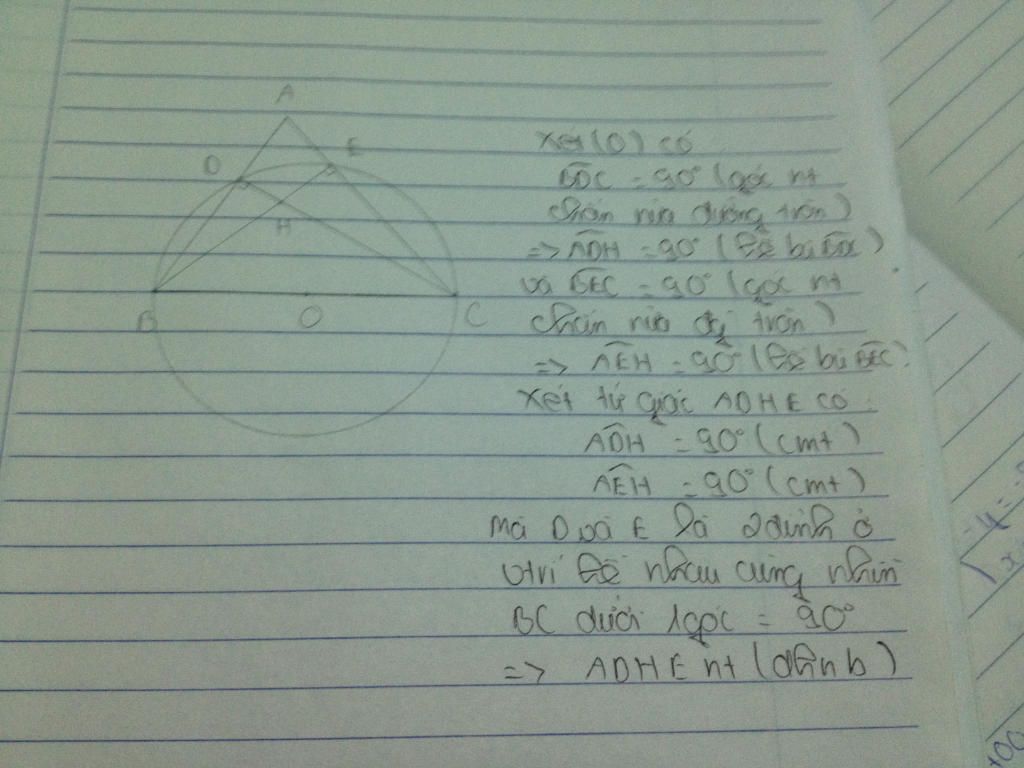 A
D
E
H
B
O
C
Xét (O) có
BDC = 90° (góc nt
chắn nửa đường tròn)
=> ADH = 90° (kề bù BDC)
và BEC = 90° (góc nt
chắn nửa đg tròn)
=> AEH = 90° (kề bù BEC)
Xét tứ giác ADHE có:
ADH = 90° (cmt)
AEH = 90° (cmt)
Mà D và E là 2 đỉnh ở
vtrí kề nhau cùng nhìn
BC dưới 1 góc = 90°
=> ADHE nt (dhnb)